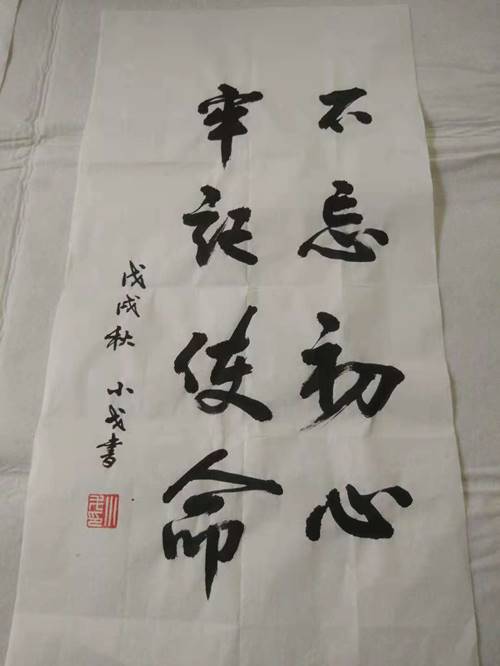 不忘初心
牢记使命
戊戌秋 小戈书